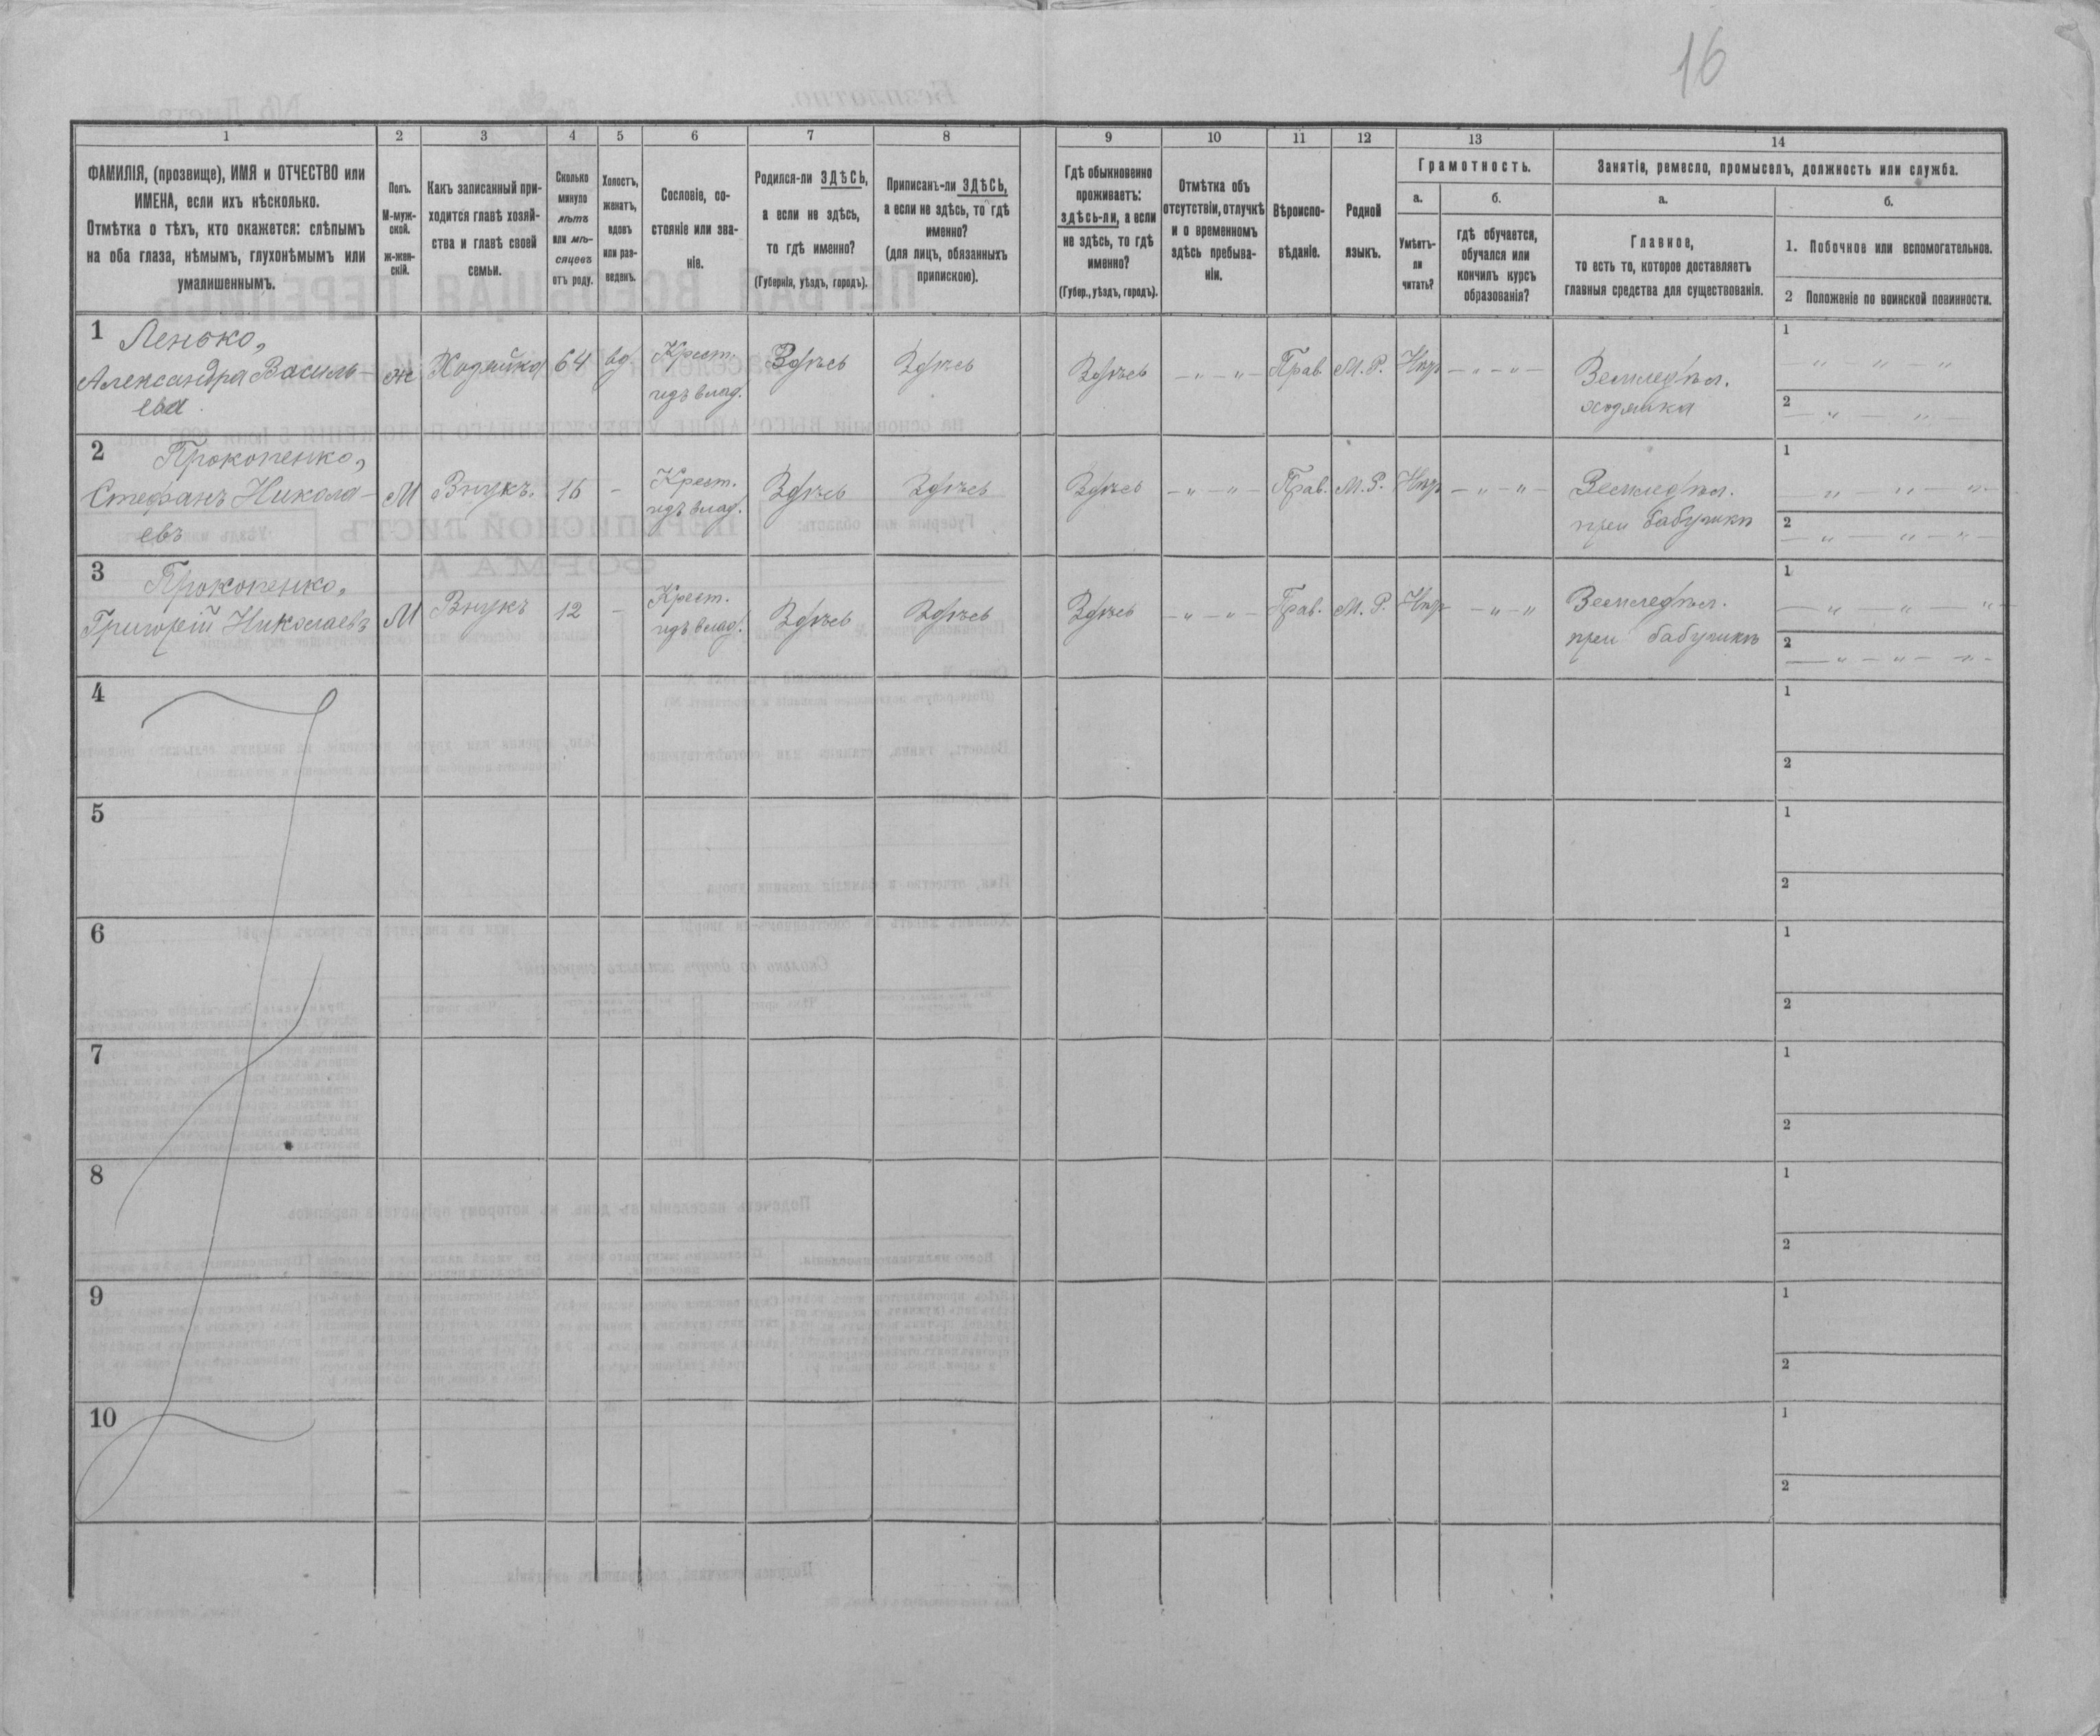 16
1
2
3
4
5
6
7
8
9
10
11
12
13
14
ФАМИЛІЯ, (прозвище), ИМЯ и ОТЧЕСТВО или
ИМЕНА, если ихъ нѣсколько.
Отмѣтка о тѣхъ, кто окажется: слѣпымъ
на оба глаза, нѣмымъ, глухонѣмымъ или
умалишеннымъ.
Полъ.
М-муж-
ской.
ж-жен-
скій.
Какъ записанный при-
ходится главѣ хозяй-
ства и главѣ своей
семьи.
Сколько
минуло
лѣтъ
или мѣ-
сяцевъ
отъ роду.
Холостъ,
женатъ,
вдовъ
или раз-
веденъ.
Сословіе, со-
стояніе или зва-
ніе.
Родился-ли ЗДѢСЬ,
а если не здѣсь,
то гдѣ именно?
(Губернія, уѣздъ, городъ).
Приписанъ-ли ЗДѢСЬ,
а если не здѣсь, то гдѣ
именно?
(для лицъ, обязанныхъ
припискою).
Гдѣ обыкновенно
проживаетъ:
здѣсь-ли, а если
не здѣсь, то гдѣ
именно?
(Губер., уѣздъ, городъ).
Отмѣтка объ
отсутствіи, отлучкѣ
и о временномъ
здѣсь пребыва-
ніи.
Вѣроиспо-
вѣданіе.
Родной
языкъ.
Грамотность.
а.
Умѣетъ-
ли
читать?
б.
гдѣ обучается,
обучался или
кончилъ курсъ
образованія?
Занятія, ремесло, промыселъ, должность или служба.
а.
Главное,
то есть то, которое доставляетъ
главныя средства для существованія.
б.
1. Побочное или вспомогательное.
2 Положеніе по воинской повинности.
1 Ленько,
Александра Василь-
ева
ж
Хозяйка
64
вд
Крест.
Здѣсь
Здѣсь
Здѣсь
— „ — „ —
Прав.
М. Р.
— „ — „ —
Земледѣл.
хозяйка
1 „ „ — „
2 — „ — „ —
2 Прокопенко,
Стефанъ Никола-
евъ
М
Внукъ.
16
-
Крест.
Здѣсь
Здѣсь
Здѣсь
— „ — „ —
Прав.
М. Р.
— „ — „ —
Земледѣл.
при бабушкѣ
1 — „ — „ — „ —
2 — „ — „ — „ —
3 Прокопенко,
Григорій Николаевъ
М
Внукъ
12
-
Крест.
Здѣсь
Здѣсь
Здѣсь
— „ — „ —
Прав.
М. Р.
— „ — „
Земледѣл.
при бабушкѣ
1 — „ — „ — „
2 — „ — „ — „ —
4
1
2
5
1
2
6
1
2
7
1
2
8
1
2
9
1
2
10
1
2